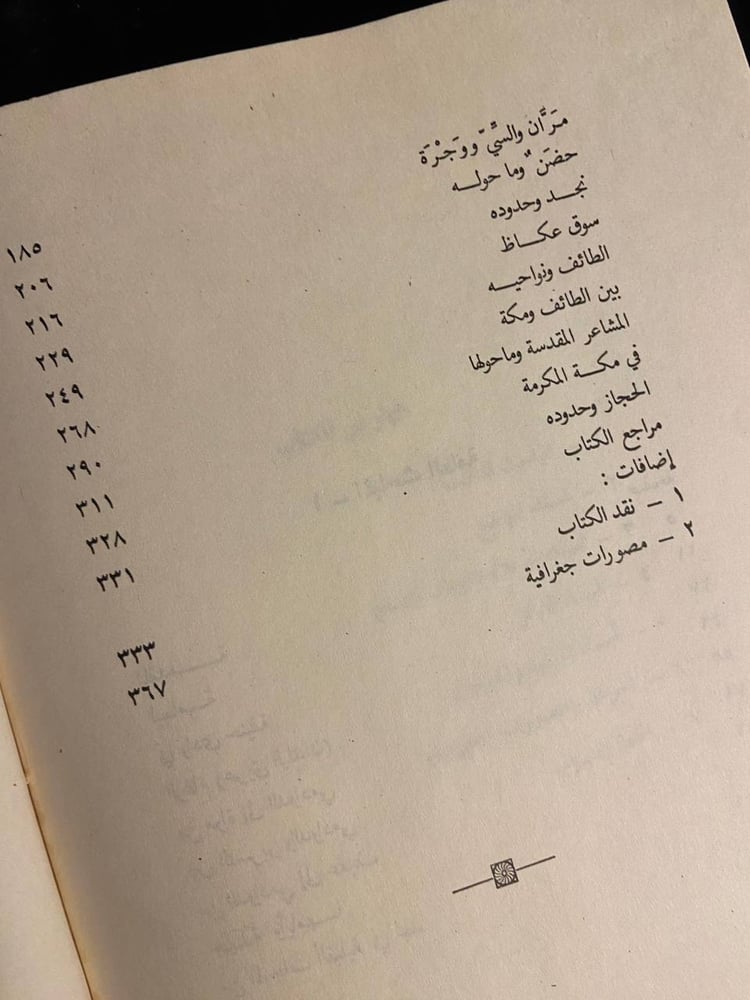 مَرَّان والسِّيّ ووَجْرَة ١٨٥
حضَنٌ وما حولـــه ٢٠٦
نجـــد وحدوده ٢١٦
سوق عكـــاظ ٢٢٩
الطائف ونواحيـــه ٢٤٩
بين الطائف ومكة ٢٦٨
المشاعر المقدسة وماحولها ٢٩٠
في مكـــة المكرمة ٣١١
الحجاز وحدوده ٣٢٨
مراجع الكتاب ٣٣١
إضافات :
١ – نقد الكتاب ٣٣٣
٢ – مصورات جغرافية ٣٦٧